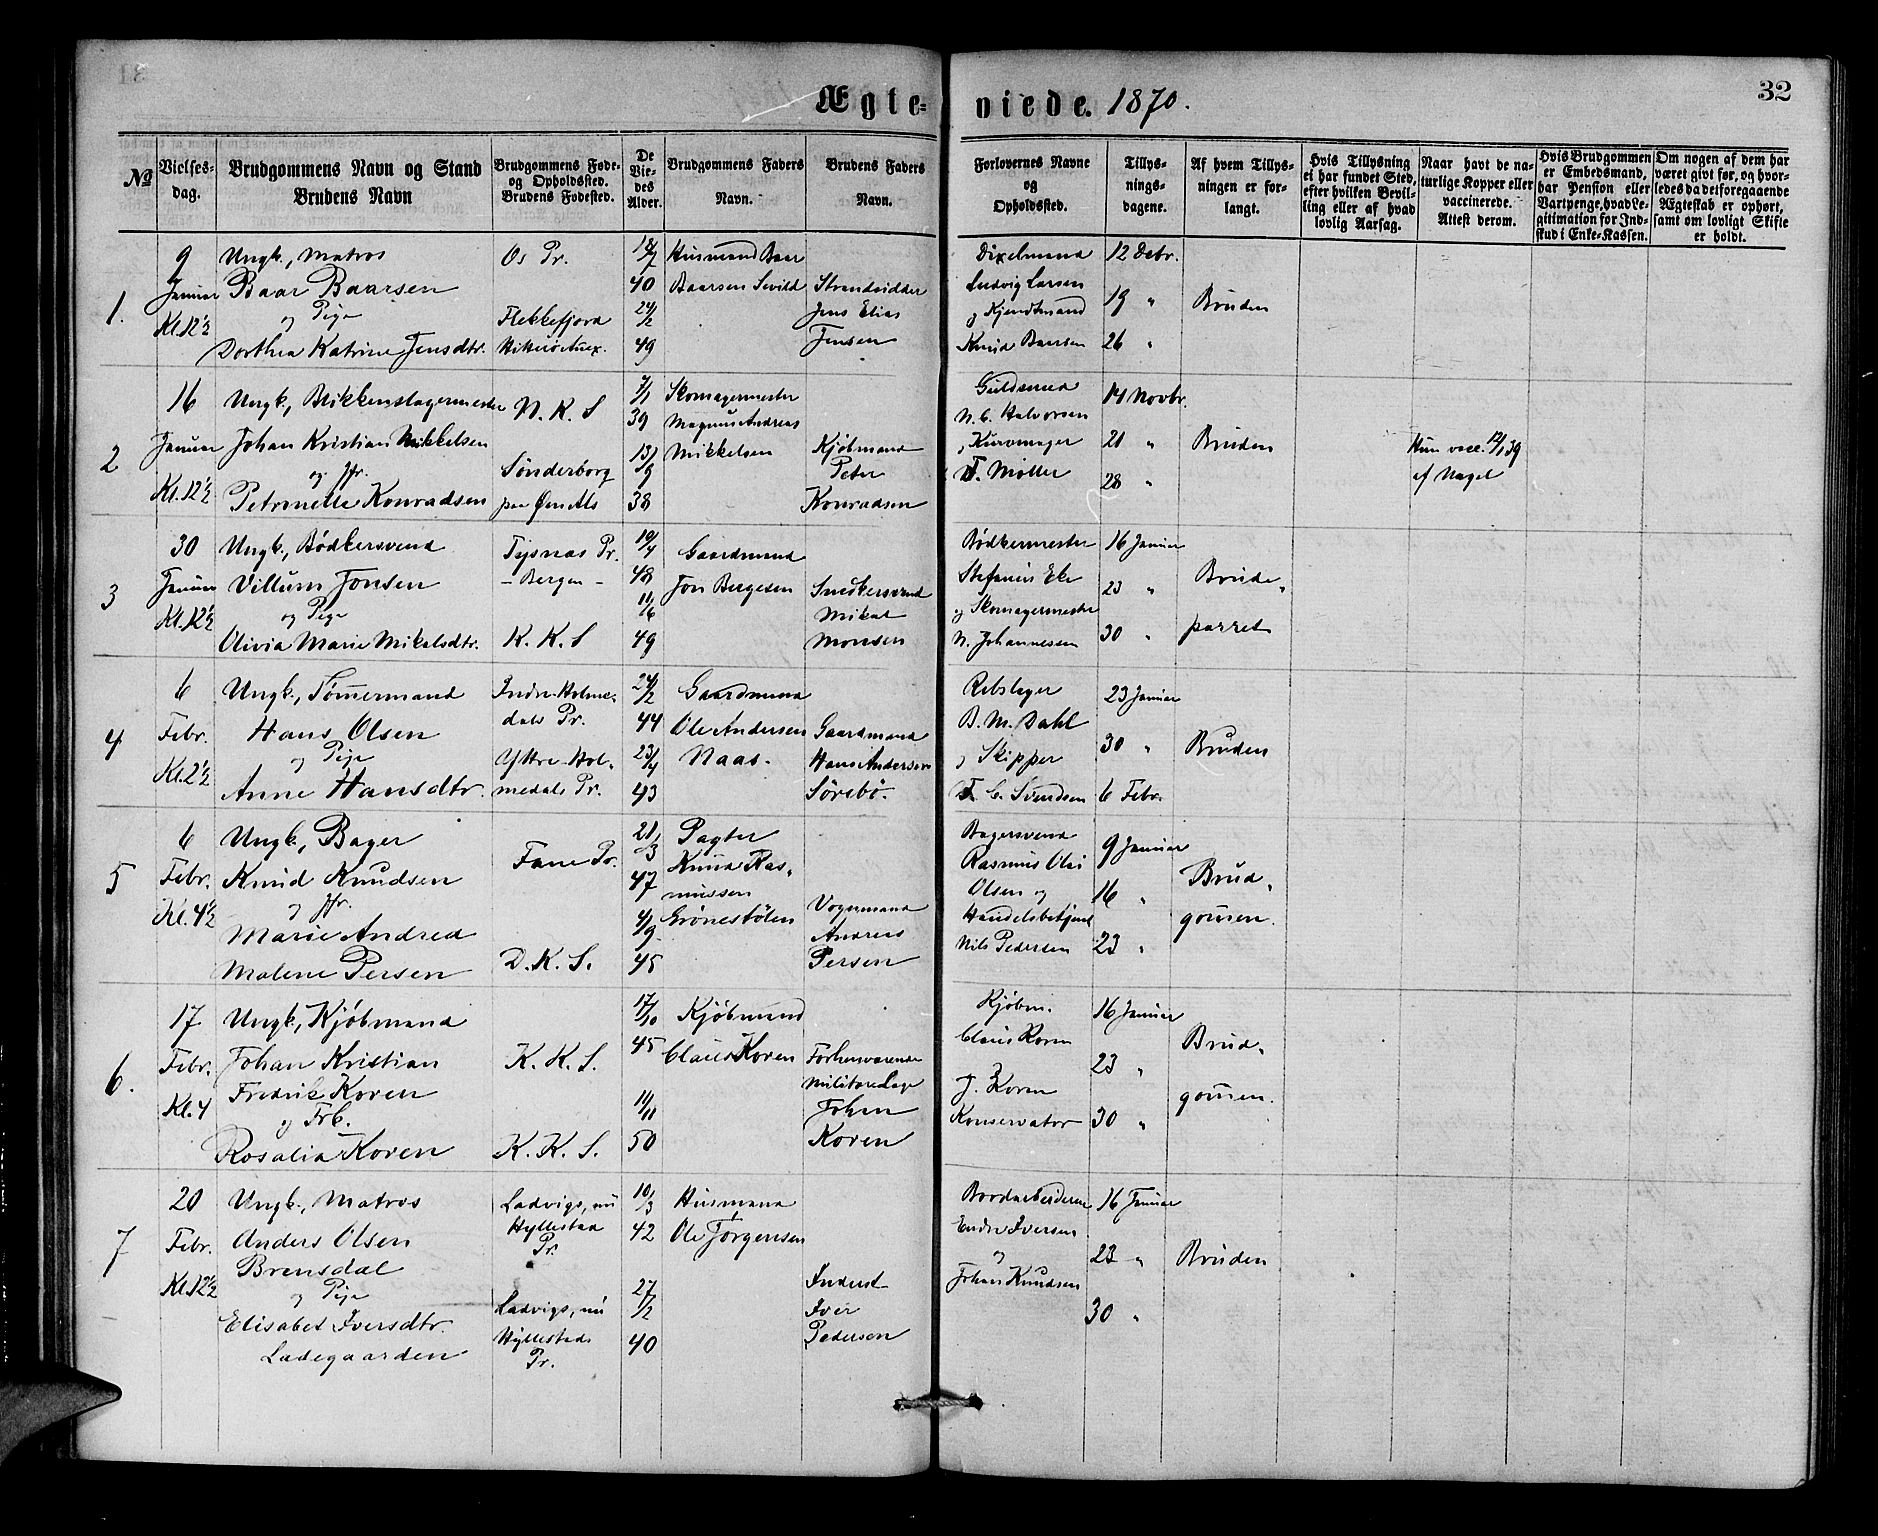 31
Ægte-
viede. 1870.
32
№
Vielses-
dag.
Brudgommens Navn og Stand
Brudens Navn
Brudgommens Føde-
og Opholdssted.
Brudens Fødested.
De
Vie-
des
Alder.
Brudgommens Faders
Navn.
Brudens Faders
Navn.
Forlovernes Navne
og
Opholdssted.
Tillys-
nings-
dagene.
Af hvem Tillys-
ningen er for-
langt.
Hvis Tillysning
ei har fundet Sted,
efter hvilken Bevil-
ling eller af hvad
lovlig Aarsag.
Naar havt de na-
turlige Kopper eller
vaccinerede.
Attest derom.
Hvis Brudgommen
er Embedsmand,
har Pension eller
Vartpenge, hvad Le-
gitimation for Ind-
skud i Enke-Kassen.
Om nogen af dem har
været givt før, og hvor-
ledes da det foregaaende
Ægteskab er ophørt,
samt om lovligt Skifte
er holdt.
1.
9
Januar
Kl. 12 1/2
Ungk., Matros
Baar Baarsen
og Pige
Dorthea Katrine Jensdtr.
Os Pr.
Flekkefjord
Hitterø Anex.
40
24/2
49
Husmand Baar
Baarsen Sevild
Strandsidder
Jens Elias
Jensen
Dixelmand
Ludvig Larsen
og Kjendtmand
Knud Baarsen
12 Debr.
19 "
26 "
Bruden
2
16
Januar
Kl. 12 1/2
Ungk., Blikkenslagermester
Johan Kristian Mikkelsen
og Jfr.
Petronelle Konradsen
N. K. S
Sønderborg
paa Øen Als
7/1
39
13/9
38
Skomagermester
Magnus Andreas
Mikkelsen
Kjøbmand
Peter
Konradsen
Guldsmed
N. C. Halvorsen
, Kurvmager
T. Møller
14 Novbr.
21 "
28 "
Bruden
Hun vacc. 12/1 39
af Nagel
3
30
Januar
Kl. 12 1/2
Ungk., Bødkersvend
Villum Jonsen
og Pige
Olivia Marie Mikalsdtr.
Tysnæs Pr.
- Bergen -
K. K. S
19/4
48
11/6
49
Gaardmand
Jon Bergesen
Snedkersvend
Mikal
Monsen
Bødkermester
Stefanus Eke
og Skomagermester
N. Johannesen
16 Januar
23 "
30 "
Brude-
parret
4
6
Febr.
Kl. 2 1/2
Ungk., Tømmermand
Hans Olsen
og Pige
Anne Hansdtr.
Indre-Holme-
dals Pr.
Yttre-Hol-
medals Pr.
24/2
44
23/4
43
Gaardmand
Ole Andersen
Naas.
Gaardmand
Hans Andersen
Sørebø.
Rebslager
B. M. Dahl
, Skipper
T. C. Svendsen
23 Januar
30 "
6 Febr.
Bruden
5
6
Febr.
Kl. 4 1/2
Ungk., Bager
Knud Knudsen
og Jfr.
Marie Andrea
Malene Persen
Fane Pr.
D. K. S.
21/3
47
4/9
45
Pagter
Knud Ras-
mussen
Grønestølen
Vognmand
Andreas
Persen
Bagersvend
Rasmus Olai
Olsen og
Handelsbetjent
Nils Pedersen
9 Januar
16 "
23 "
Brud-
gommen.
6.
17
Febr.
Kl. 4
Ungk., Kjøbmand
Johan Kristian
Fredrik Koren
og Frk.
Rosalia Koren
K. K. S.
K. K. S.
17/10
45
50
Kjøbmand
Claus Koren
Forhenværende
Militærlæge
Johan
Koren
Kjøbm.
Claus Koren
J. Koren
Konservator
16 Januar
23 "
30 "
Brud-
gommen.
7
20
Febr.
Kl. 12 1/2
Ungk., Matros
Anders Olsen
Brensdal
og Pige
Elisabet Iversdtr.
Ladegaarden
Ladvigs, nu
Hyllestad
Pr.
Ladvigs, nu
Hyllestads
Pr.
10/3
42
27/2
40
Husmand
Ole Jørgensen
Inderst
Iver
Pedersen
Bordarbeiderne
Endre Iversen
og
Johan Knudsen
16 Januar
23 "
30 "
Bruden